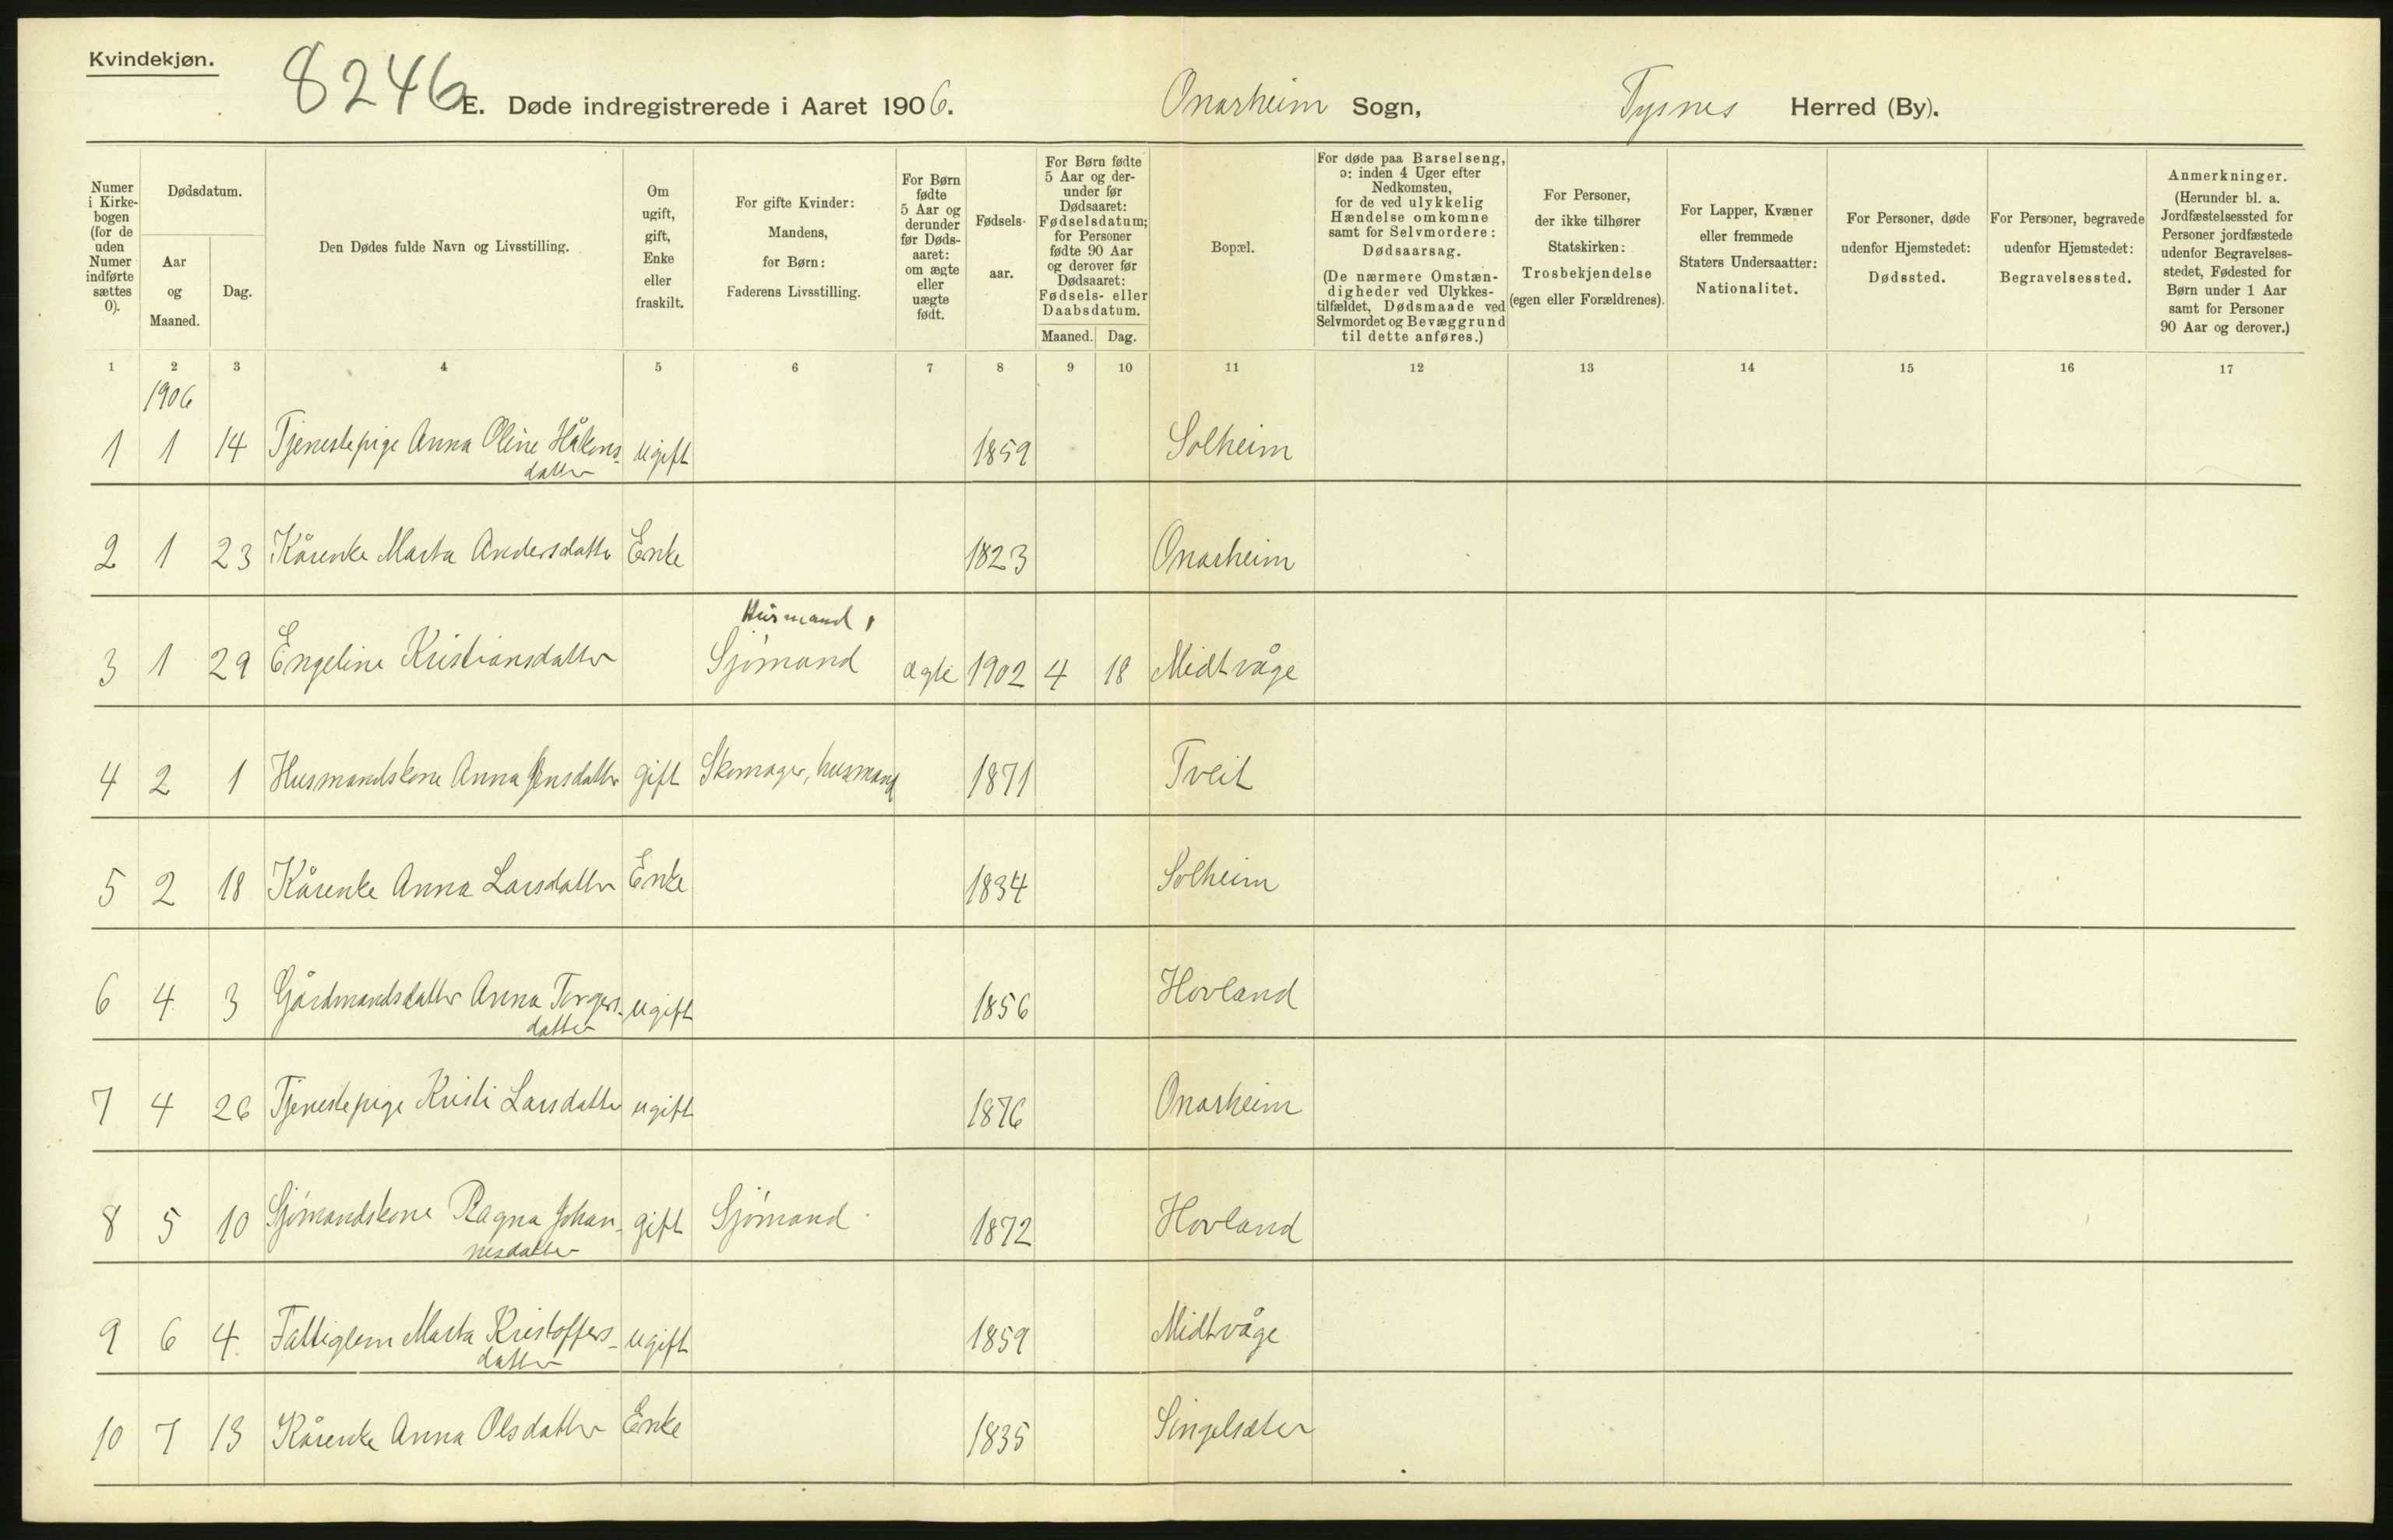 Kvindekjøn.
8246
E. Døde indregistrerede i Aaret 1906. Onarheim Sogn, Tysnes Herred (By).
Numer i Kirke-bogen (for de uden Numer indførte sættes 0).
Dødsdatum.
Aar og Maaned.
Dag.
Den Dødes fulde Navn og Livsstilling.
Om ugift, gift, Enke eller fraskilt.
For gifte Kvinder: Mandens, for Børn: Faderens Livsstilling.
For Børn fødte 5 Aar og derunder før Døds-aaret: om ægte eller uægte født.
Fødsels-aar.
For Børn fødte 5 Aar og der-under før Dødsaaret: Fødselsdatum; for Personer fødte 90 Aar og derover før Dødsaaret: Fødsels- eller Daabsdatum.
Maaned. Dag.
Bopæl.
For døde paa Barselseng, ɔ: inden 4 Uger efter Nedkomsten, for de ved ulykkelig Hændelse omkomne samt for Selvmordere: Dødsaarsag. (De nærmere Omstæn-digheder ved Ulykkes-tilfældet, Dødsmaade ved Selvmordet og Bevæggrund til dette anføres.)
For Personer, der ikke tilhører Statskirken: Trosbekjendelse (egen eller Forældrenes).
For Lapper, Kvæner eller fremmede Staters Undersaatter: Nationalitet.
For Personer, døde udenfor Hjemstedet: Dødssted.
For Personer, begravede udenfor Hjemstedet: Begravelsessted.
Anmerkninger. (Herunder bl. a. Jordfæstelsessted for Personer jordfæstede udenfor Begravelses-stedet, Fødested for Børn under 1 Aar samt for Personer 90 Aar og derover.)
1 2 3 4 5 6 7 8 9 10 11 12 13 14 15 16 17
1906
1 1 14 Tjenestepige Anna Oline Håkons- ugift 1859 Solheim
datter
2 1 23 Kårenke Marta Andersdatter Enke 1823 Onarheim
Husmand,
3 1 29 Engeline Kristiansdatter Sjömand ægte 1902 4 18 Midtvåge
4 2 1 Husmandskone Anna Jensdatter gift Skomager, husmand 1871 Tveit
5 2 18 Kårenke Anna Larsdatter Enke 1834 Solheim
6 4 3 Gårdmandsdatter Anna Torgers- ugift 1856 Hovland
datter
7 4 26 Tjenestepige Kristi Larsdatter ugift 1876 Onarheim
8 5 10 Sjömandskone Ragna Johan- gift Sjömand 1872 Hovland
nesdatter
9 6 4 Fattiglem Marta Kristoffers- ugift 1859 Midtvåge
datter
10 7 13 Kårenke Anna Olsdatter Enke 1835 Singelsæter